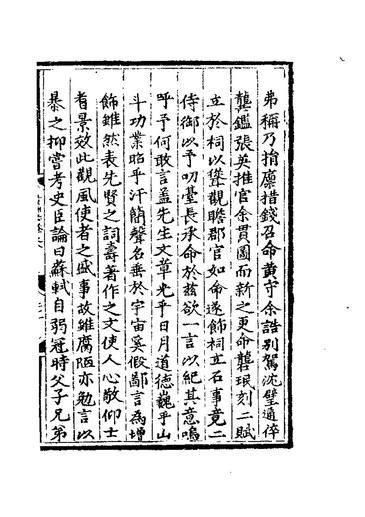 弗稱乃捐廩措錢召命黃守余誥別駕沈璧通倅
龔鑑張英推官余貫圖而新之更命龔琅刻二賦
立於祠以聳觀瞻郡官如命遂飾祠立石事竟二
侍御以予叨臺長承命於茲欲一言以紀其意嗚
呼予何敢言盖先生文章光乎日月道德巍乎山
斗功業昭乎汗簡聲名垂於宇宙奚假鄙言為增
飾雖然表先賢之詞壽著作之文使人心敬仰士
者景效此觀風使者之盛事故雖腐陋亦勉言以
暴之抑嘗考史臣論曰蘇軾自弱冠時父子兄弟